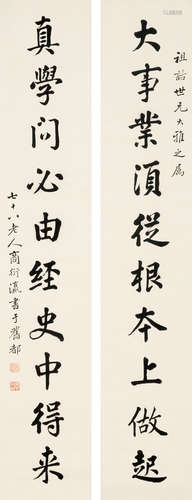 祖詒世兄大雅之屬
大事業須從根本上做起
真學問必由經史中得来
七十八老人商衍瀛書于舊都